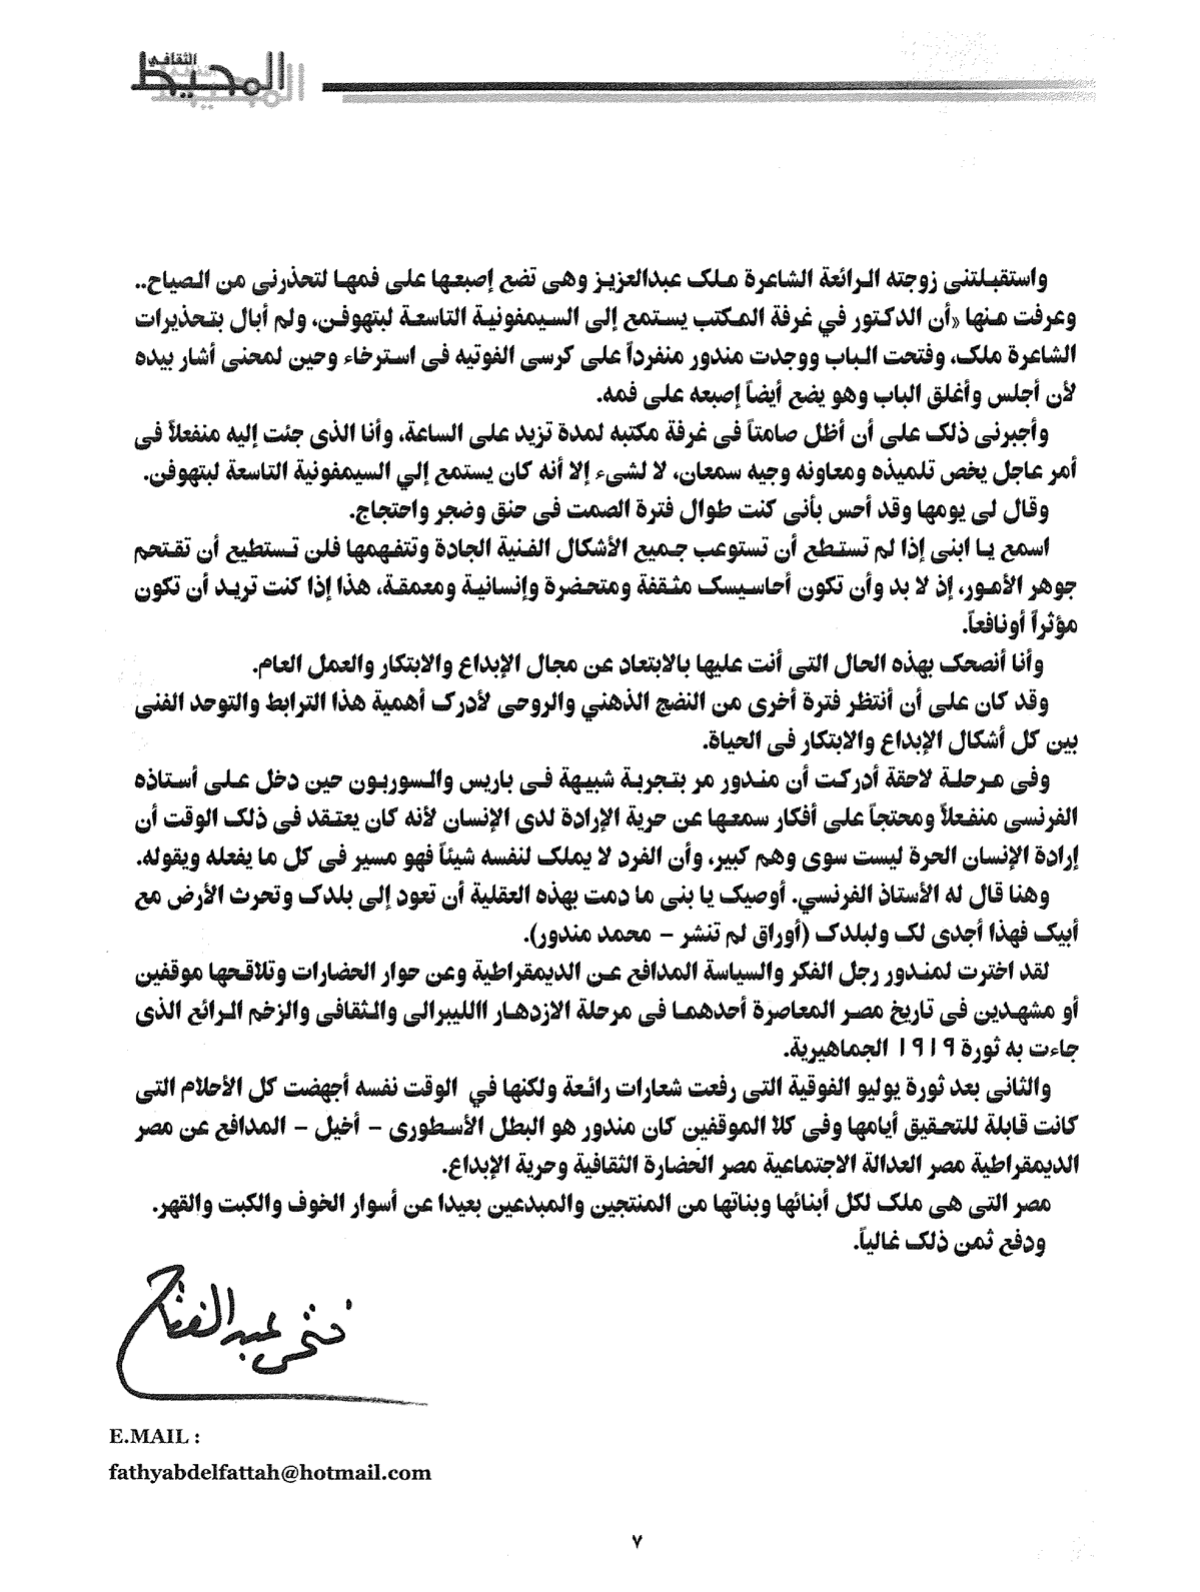 الثقافي
المحيط
واستقبلتنى زوجته الرائعة الشاعرة ملك عبدالعزيز وهى تضع إصبعها على فمها لتحذرنى من الصياح..
وعرفت منها «أن الدكتور في غرفة المكتب يستمع إلى السيمفونية التاسعة لبتهوفن، ولم أبال بتحذيرات
الشاعرة ملك، وفتحت الباب ووجدت مندور منفرداً على كرسى الفوتيه فى استرخاء وحين لمحنى أشار بيده
لأن أجلس وأغلق الباب وهو يضع أيضاً إصبعه على فمه.
وأجبرنى ذلك على أن أظل صامتاً فى غرفة مكتبه لمدة تزيد على الساعة، وأنا الذى جئت إليه منفعلاً فى
أمر عاجل يخص تلميذه ومعاونه وجيه سمعان، لا لشىء إلا أنه كان يستمع إلي السيمفونية التاسعة لبتهوفن.
وقال لى يومها وقد أحس بأنى كنت طوال فترة الصمت فى حنق وضجر واحتجاج.
اسمع يا ابنى إذا لم تستطع أن تستوعب جميع الأشكال الفنية الجادة وتتفهمها فلن تستطيع أن تقتحم
جوهر الأمور، إذ لا بد وأن تكون أحاسيسك مثقفة ومتحضرة وإنسانية ومعمقة، هذا إذا كنت تريد أن تكون
مؤثراً أونافعاً.
وأنا أنصحك بهذه الحال التى أنت عليها بالابتعاد عن مجال الإبداع والابتكار والعمل العام.
وقد كان على أن أنتظر فترة أخرى من النضج الذهني والروحى لأدرك أهمية هذا الترابط والتوحد الفنى
بين كل أشكال الإبداع والابتكار فى الحياة.
وفى مرحلة لاحقة أدركت أن مندور مر بتجربة شبيهة فى باريس والسوربون حين دخل على أستاذه
الفرنسى منفعلاً ومحتجاً على أفكار سمعها عن حرية الإرادة لدى الإنسان لأنه كان يعتقد فى ذلك الوقت أن
إرادة الإنسان الحرة ليست سوى وهم كبير، وأن الفرد لا يملك لنفسه شيئاً فهو مسير فى كل ما يفعله ويقوله.
وهنا قال له الأستاذ الفرنسي. أوصيك يا بنى ما دمت بهذه العقلية أن تعود إلى بلدك وتحرث الأرض مع
أبيك فهذا أجدى لك ولبلدك (أوراق لم تنشر – محمد مندور).
لقد اخترت لمندور رجل الفكر والسياسة المدافع عن الديمقراطية وعن حوار الحضارات وتلاقحها موقفين
أو مشهدين فى تاريخ مصر المعاصرة أحدهما فى مرحلة الازدهار االليبرالى والثقافى والزخم الرائع الذى
جاءت به ثورة ١٩١٩ الجماهيرية.
والثانى بعد ثورة يوليو الفوقية التى رفعت شعارات رائعة ولكنها في الوقت نفسه أجهضت كل الأحلام التى
كانت قابلة للتحقيق أيامها وفى كلا الموقفين كان مندور هو البطل الأسطورى – أخيل – المدافع عن مصر
الديمقراطية مصر العدالة الاجتماعية مصر الحضارة الثقافية وحرية الإبداع.
مصر التى هى ملك لكل أبنائها وبناتها من المنتجين والمبدعين بعيدا عن أسوار الخوف والكبت والقهر.
ودفع ثمن ذلك غالياً.
فتحى عبد الفتاح
E.MAIL :
fathyabdelfattah@hotmail.com
٧